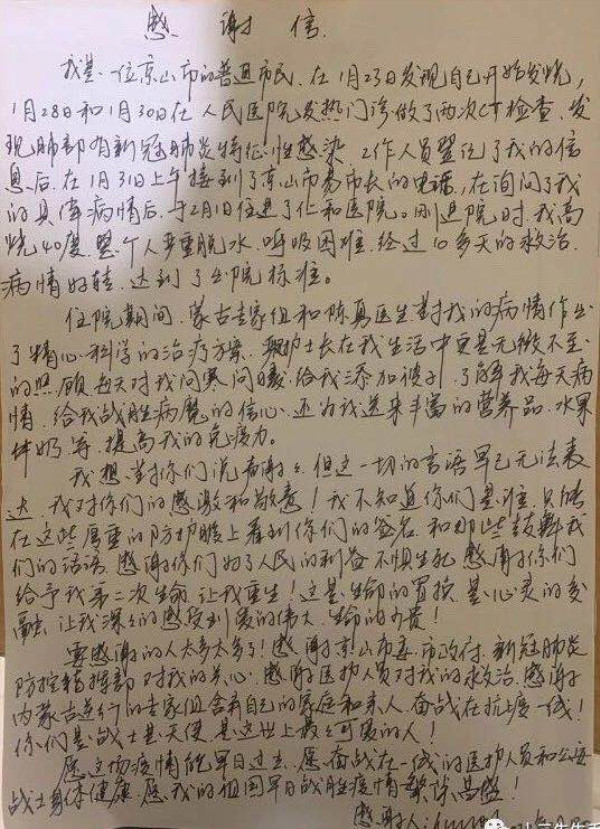 感谢信
我是一位京山市的普通市民,在1月23日发现自己开始发烧,
1月28日和1月30日在人民医院发热门诊做了两次CT检查,发
现肺部有新冠肺炎特征性感染,工作人员登记了我的信
息后,在1月31日上午接到了京山市易市长的电话,在询问了我
的具体病情后,于2月1日住进了仁和医院。刚进院时,我高
烧40度,整个人严重脱水,呼吸困难,经过10多天的救治,
病情好转,达到了出院标准。
住院期间,蒙古专家组和陈真医生对我的病情作出
了精心科学的治疗方案,护士长在我生活中更是无微不至
的照顾,每天对我问寒问暖,给我添加被子,了解我每天病
情,给我战胜病魔的信心,还为我送来丰富的营养品,水果
牛奶等,提高我的免疫力。
我想对你们说声谢谢,但这一切的言语早已无法表
达,我对你们的感激和敬意!我不知道你们是谁,只能
在这些厚重的防护服上看到你们的签名,和那些鼓舞我
们的话语,感谢你们为了人民的利益不惧生死,感谢你们
给予我第二次生命,让我重生!这是生命的置换,是心灵的交
融,让我深深的感受到爱的伟大,生命的可贵!
要感谢的人太多太多了!感谢京山市委,市政府,新冠肺炎
防控指挥部对我的关心,感谢医护人员对我的救治,感谢
内蒙古逆行的专家组舍弃自己的家庭和亲人,奋战在抗疫一线!
你们是战士是天使,是这世上最最可爱的人!
愿这场疫情能早日过去,愿奋战在一线的医护人员和公安
战士身体健康,愿我的祖国早日战胜疫情繁荣昌盛!
感谢人: